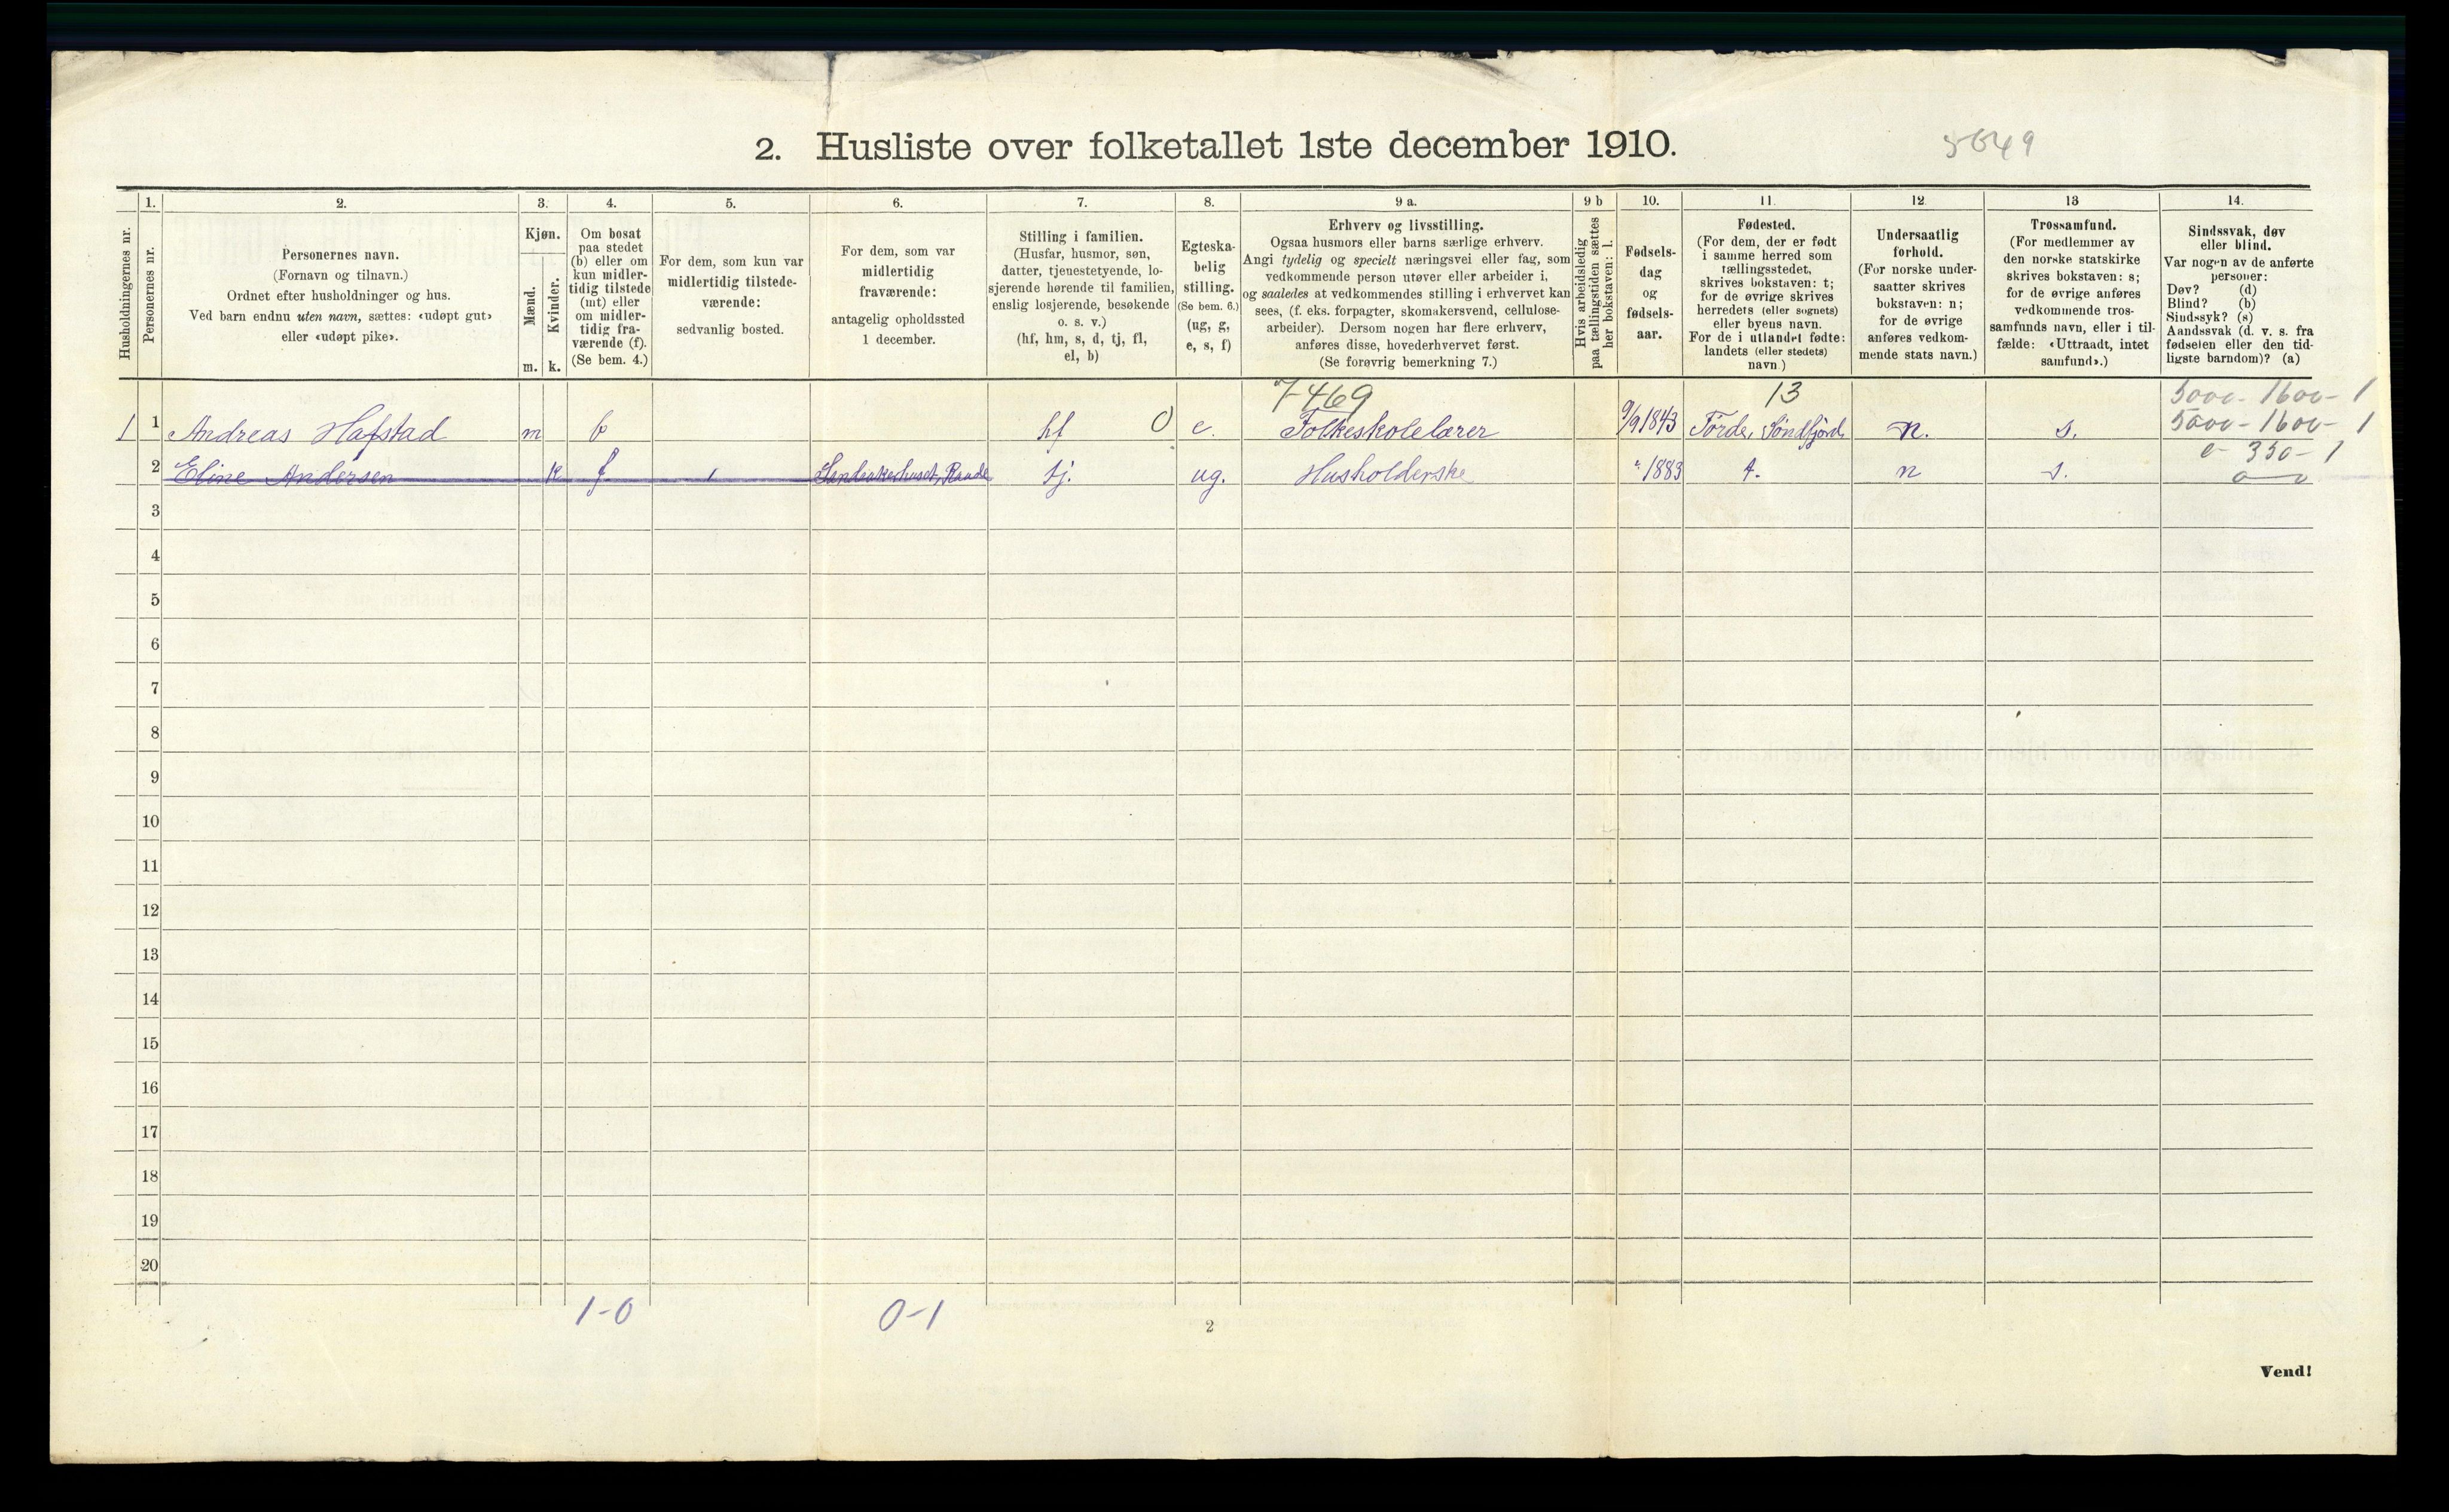 2. Husliste over folketallet 1ste december 1910.
Husholdningernes nr.
1.
Personernes nr.
2.
Personernes navn.
(Fornavn og tilnavn.)
Ordnet efter husholdninger og hus.
Ved barn endnu uten navn, sættes: «udøpt gut»
eller «udøpt pike».
3.
Kjøn.
Mænd.
Kvinder.
m. k.
4.
Om bosat
paa stedet
(b) eller om
kun midler-
tidig tilstede
(mt) eller
om midler-
tidig fra-
værende (f).
(Se bem. 4.)
5.
For dem, som kun var
midlertidig tilstede-
værende:
sedvanlig bosted.
6.
For dem, som var
midlertidig
fraværende:
antagelig opholdssted
1 december.
7.
Stilling i familien.
(Husfar, husmor, søn,
datter, tjenestetyende, lo-
sjerende hørende til familien,
enslig losjerende, besøkende
o. s. v.)
(hf, hm, s, d, tj, fl,
el, b)
8.
Egteska-
belig
stilling.
(Se bem. 6.)
(ug, g,
e, s, f)
9 a.
Erhverv og livsstilling.
Ogsaa husmors eller barns særlige erhverv.
Angi tydelig og specielt næringsvei eller fag, som
vedkommende person utøver eller arbeider i,
og saaledes at vedkommendes stilling i erhvervet kan
sees, (f. eks. forpagter, skomakersvend, cellulose-
arbeider). Dersom nogen har flere erhverv,
anføres disse, hovederhvervet først.
(Se forøvrig bemerkning 7.)
9 b
Hvis arbeidsledig
paa tællingstiden sættes
her bokstaven: l.
10.
Fødsels-
dag
og
fødsels-
aar.
11.
Fødested.
(For dem, der er født
i samme herred som
tællingsstedet,
skrives bokstaven: t;
for de øvrige skrives
herredets (eller sognets)
eller byens navn.
For de i utlandet fødte:
landets (eller stedets)
navn.)
12.
Undersaatlig
forhold.
(For norske under-
saatter skrives
bokstaven: n;
for de øvrige
anføres vedkom-
mende stats navn.)
13
Trossamfund.
(For medlemmer av
den norske statskirke
skrives bokstaven: s;
for de øvrige anføres
vedkommende tros-
samfunds navn, eller i til-
fælde: «Uttraadt, intet
samfund».)
14.
Sindssvak, døv
eller blind.
Var nogen av de anførte
personer:
Døv? (d)
Blind? (b)
Sindssyk? (s)
Aandssvak (d. v. s. fra
fødselen eller den tid-
ligste barndom)? (a)
7-469 13 5000- 1600- 1
1 1 Andreas Hafstad m b hf 0 e. Folkeskolelærer 9/9 1843 Førde, Søndfjord n. s. 5000- 1600- 1
0- 350- 1
2 Eline Andersen k f Raade tj. ug. Husholderske 1883 t. n s. 0 0
3
4
5
6
7
8
9
10
11
12
13
14
15
16
17
18
19
20
1-0 0-1
2
Vend!